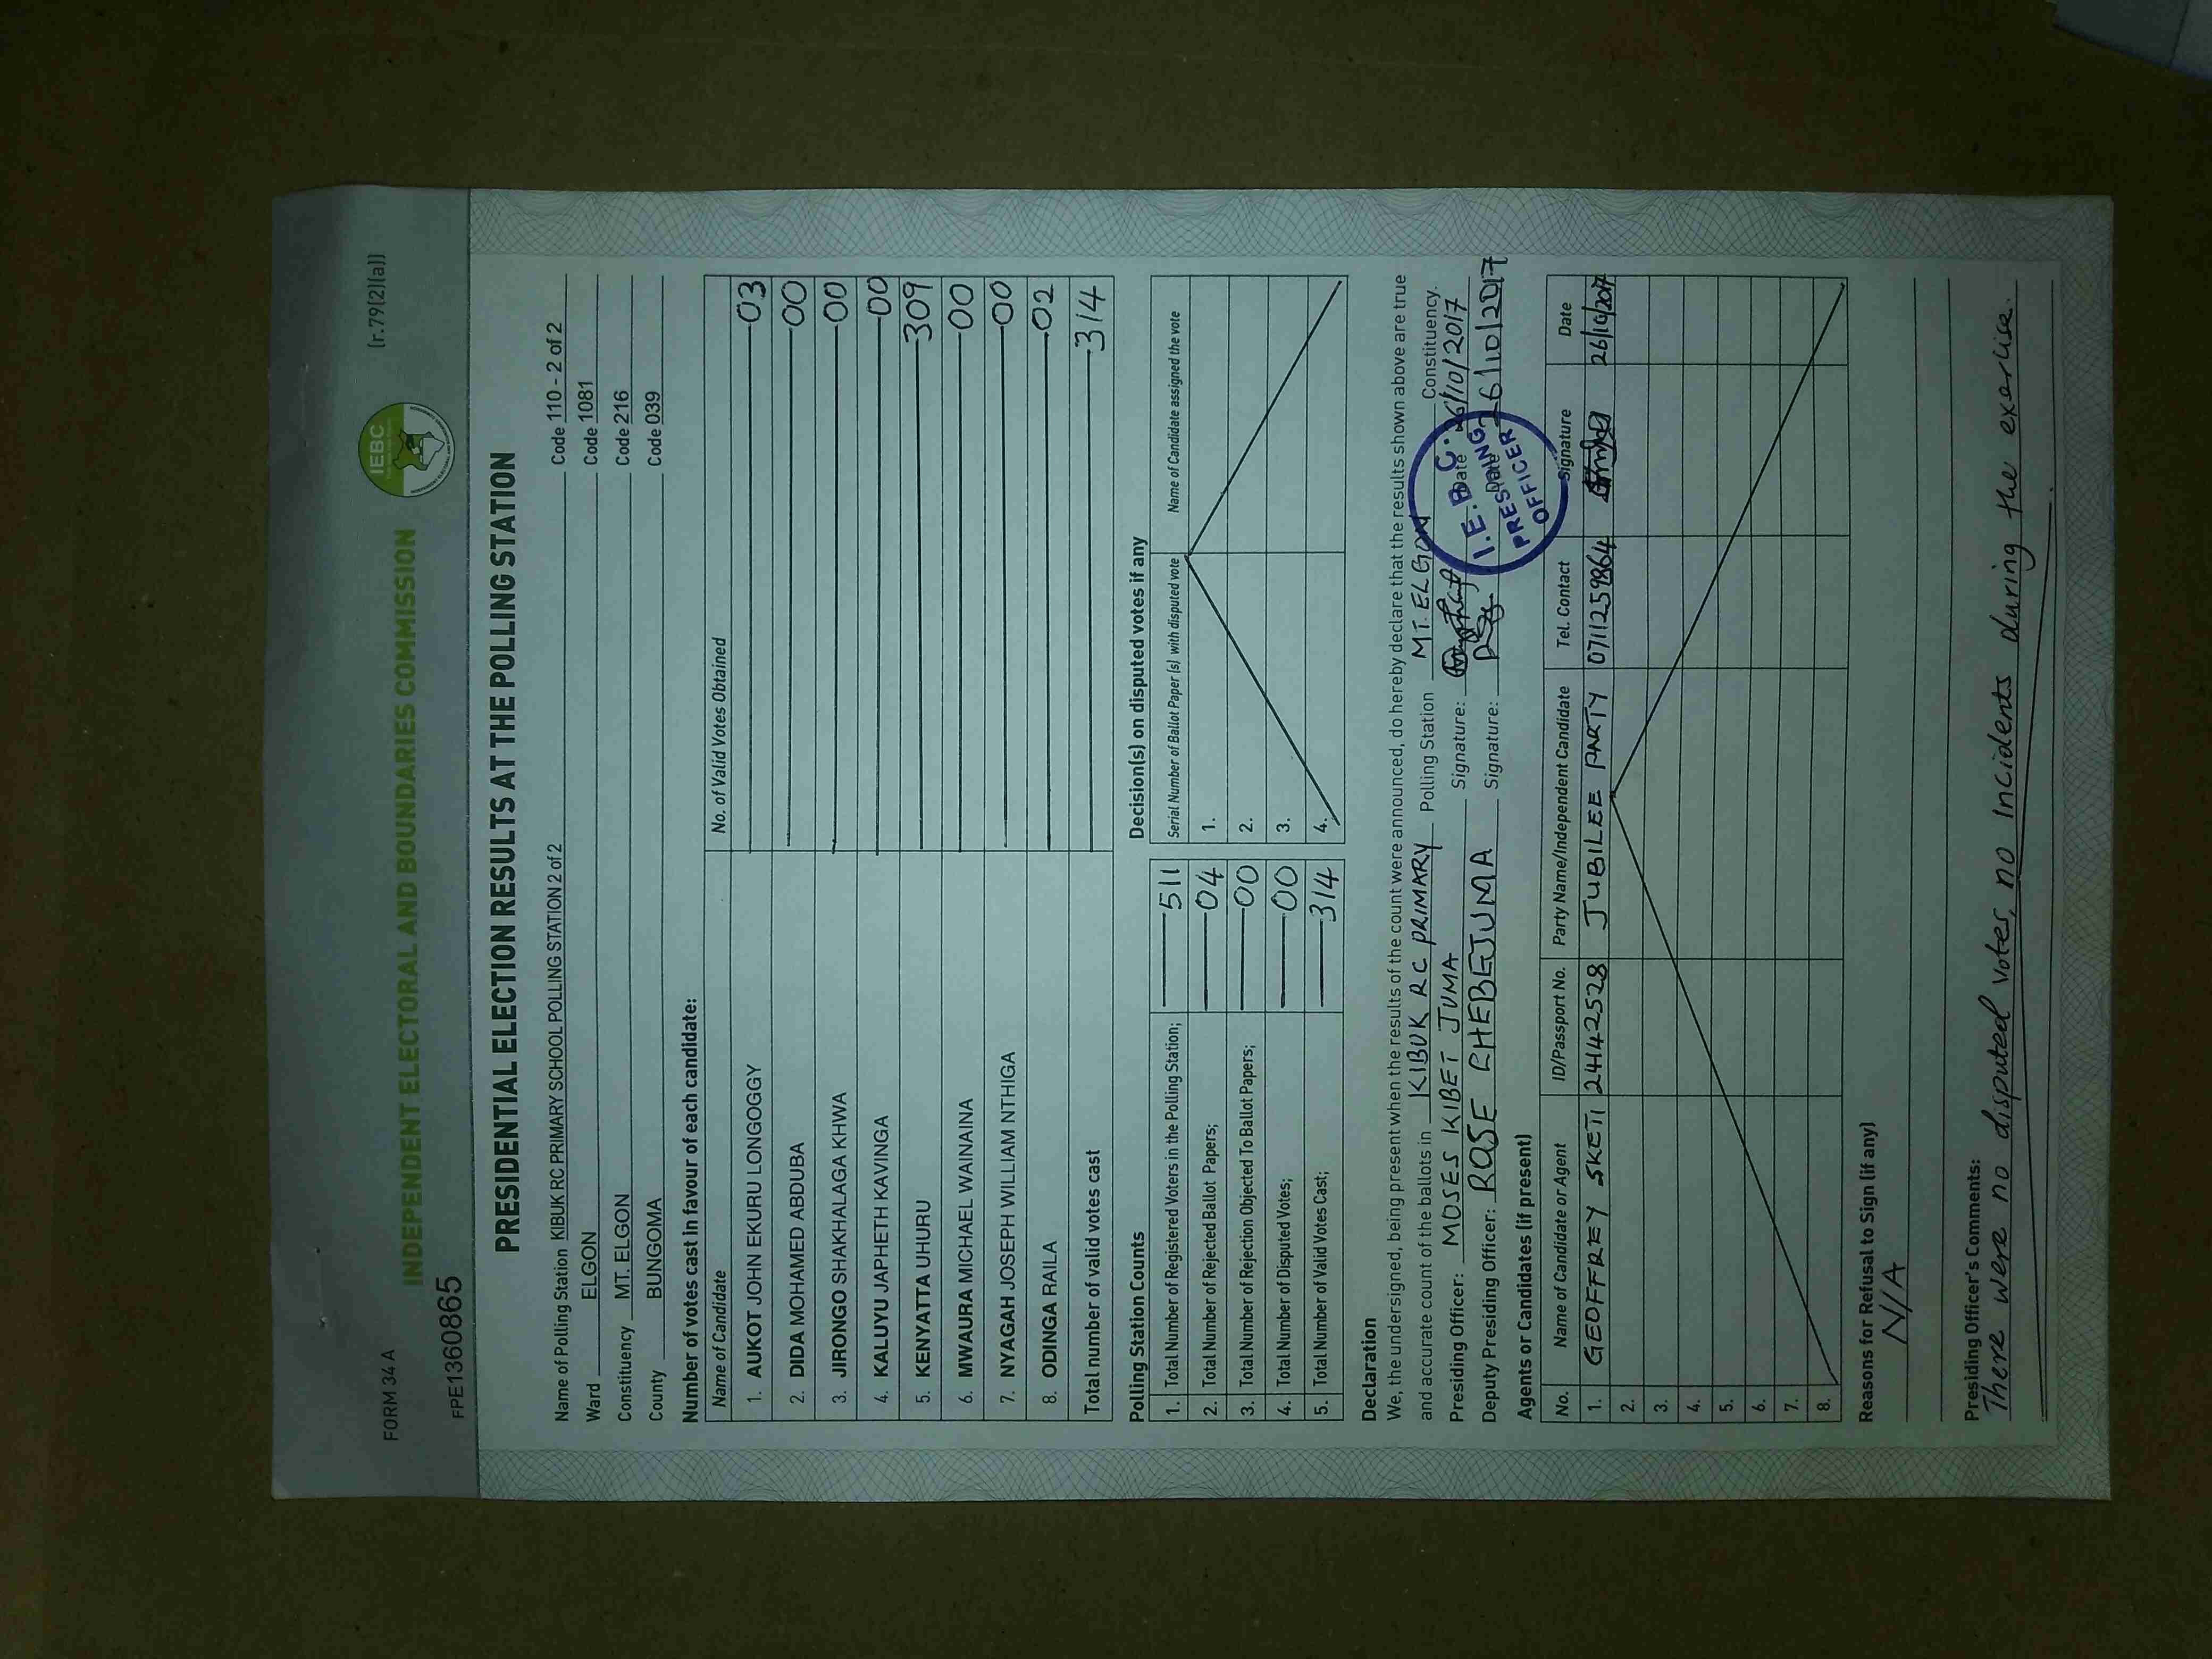 FORM 34 A
(r.79(2)(a))
IEBC
INDEPENDENT ELECTORAL AND BOUNDARIES COMMISSION
FPE1360865
PRESIDENTIAL ELECTION RESULTS AT THE POLLING STATION
Name of Polling Station KIBUK RC PRIMARY SCHOOL POLLING STATION 2 of 2 Code 110 - 2 of 2
Ward ELGON Code 1081
Constituency MT. ELGON Code 216
County BUNGOMA Code 039
Number of votes cast in favour of each candidate:
Name of Candidate No. of Valid Votes Obtained
1. AUKOT JOHN EKURU LONGOGGY 03
2. DIDA MOHAMED ABDUBA 00
3. JIRONGO SHAKHALAGA KHWA 00
4. KALUYU JAPHETH KAVINGA 00
5. KENYATTA UHURU 309
6. MWAURA MICHAEL WAINAINA 00
7. NYAGAH JOSEPH WILLIAM NTHIGA 00
8. ODINGA RAILA 02
Total number of valid votes cast 314
Polling Station Counts
1. Total Number of Registered Voters in the Polling Station; 511
2. Total Number of Rejected Ballot Papers; 04
3. Total Number of Rejection Objected To Ballot Papers; 00
4. Total Number of Disputed Votes; 00
5. Total Number of Valid Votes Cast; 314
Decision(s) on disputed votes if any
Serial Number of Ballot Paper (s) with disputed vote Name of Candidate assigned the vote
1.
2.
3.
4.
Declaration
We, the undersigned, being present when the results of the count were announced, do hereby declare that the results shown above are true
and accurate count of the ballots in KIBUK RC PRIMARY Polling Station MT. ELGON Constituency.
Presiding Officer: MOSES KIBET JUMA Signature: Date 26/10/2017
Deputy Presiding Officer: ROSE CHEBEJUMA Signature: Date 26/10/2017
I.E.B.C.
PRESIDING
OFFICER
Agents or Candidates (if present)
No. Name of Candidate or Agent ID/Passport No. Party Name/Independent Candidate Tel. Contact Signature Date
1. GEOFFREY SKETI 24442528 JUBILEE PARTY 0711259864 26/10/2017
2.
3.
4.
5.
6.
7.
8.
Reasons for Refusal to Sign (if any)
N/A
Presiding Officer's Comments:
There were no disputed votes, no incidents during the exercise.